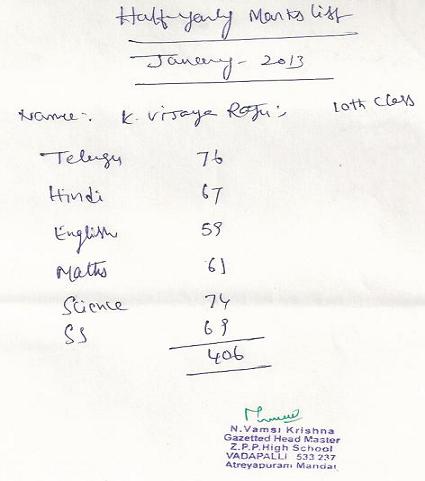 Half-yearly Marks list
January - 2013
Name:. K. Vijaya Raju:, 10th Class
Telugu 76
Hindi 67
English 59
Maths 61
Science 74
SS 69
406
N.Vamsi Krishna
Gazetted Head Master
Z.P.P.High School
VADAPALLI 533 237
Atreyapuram Mandal